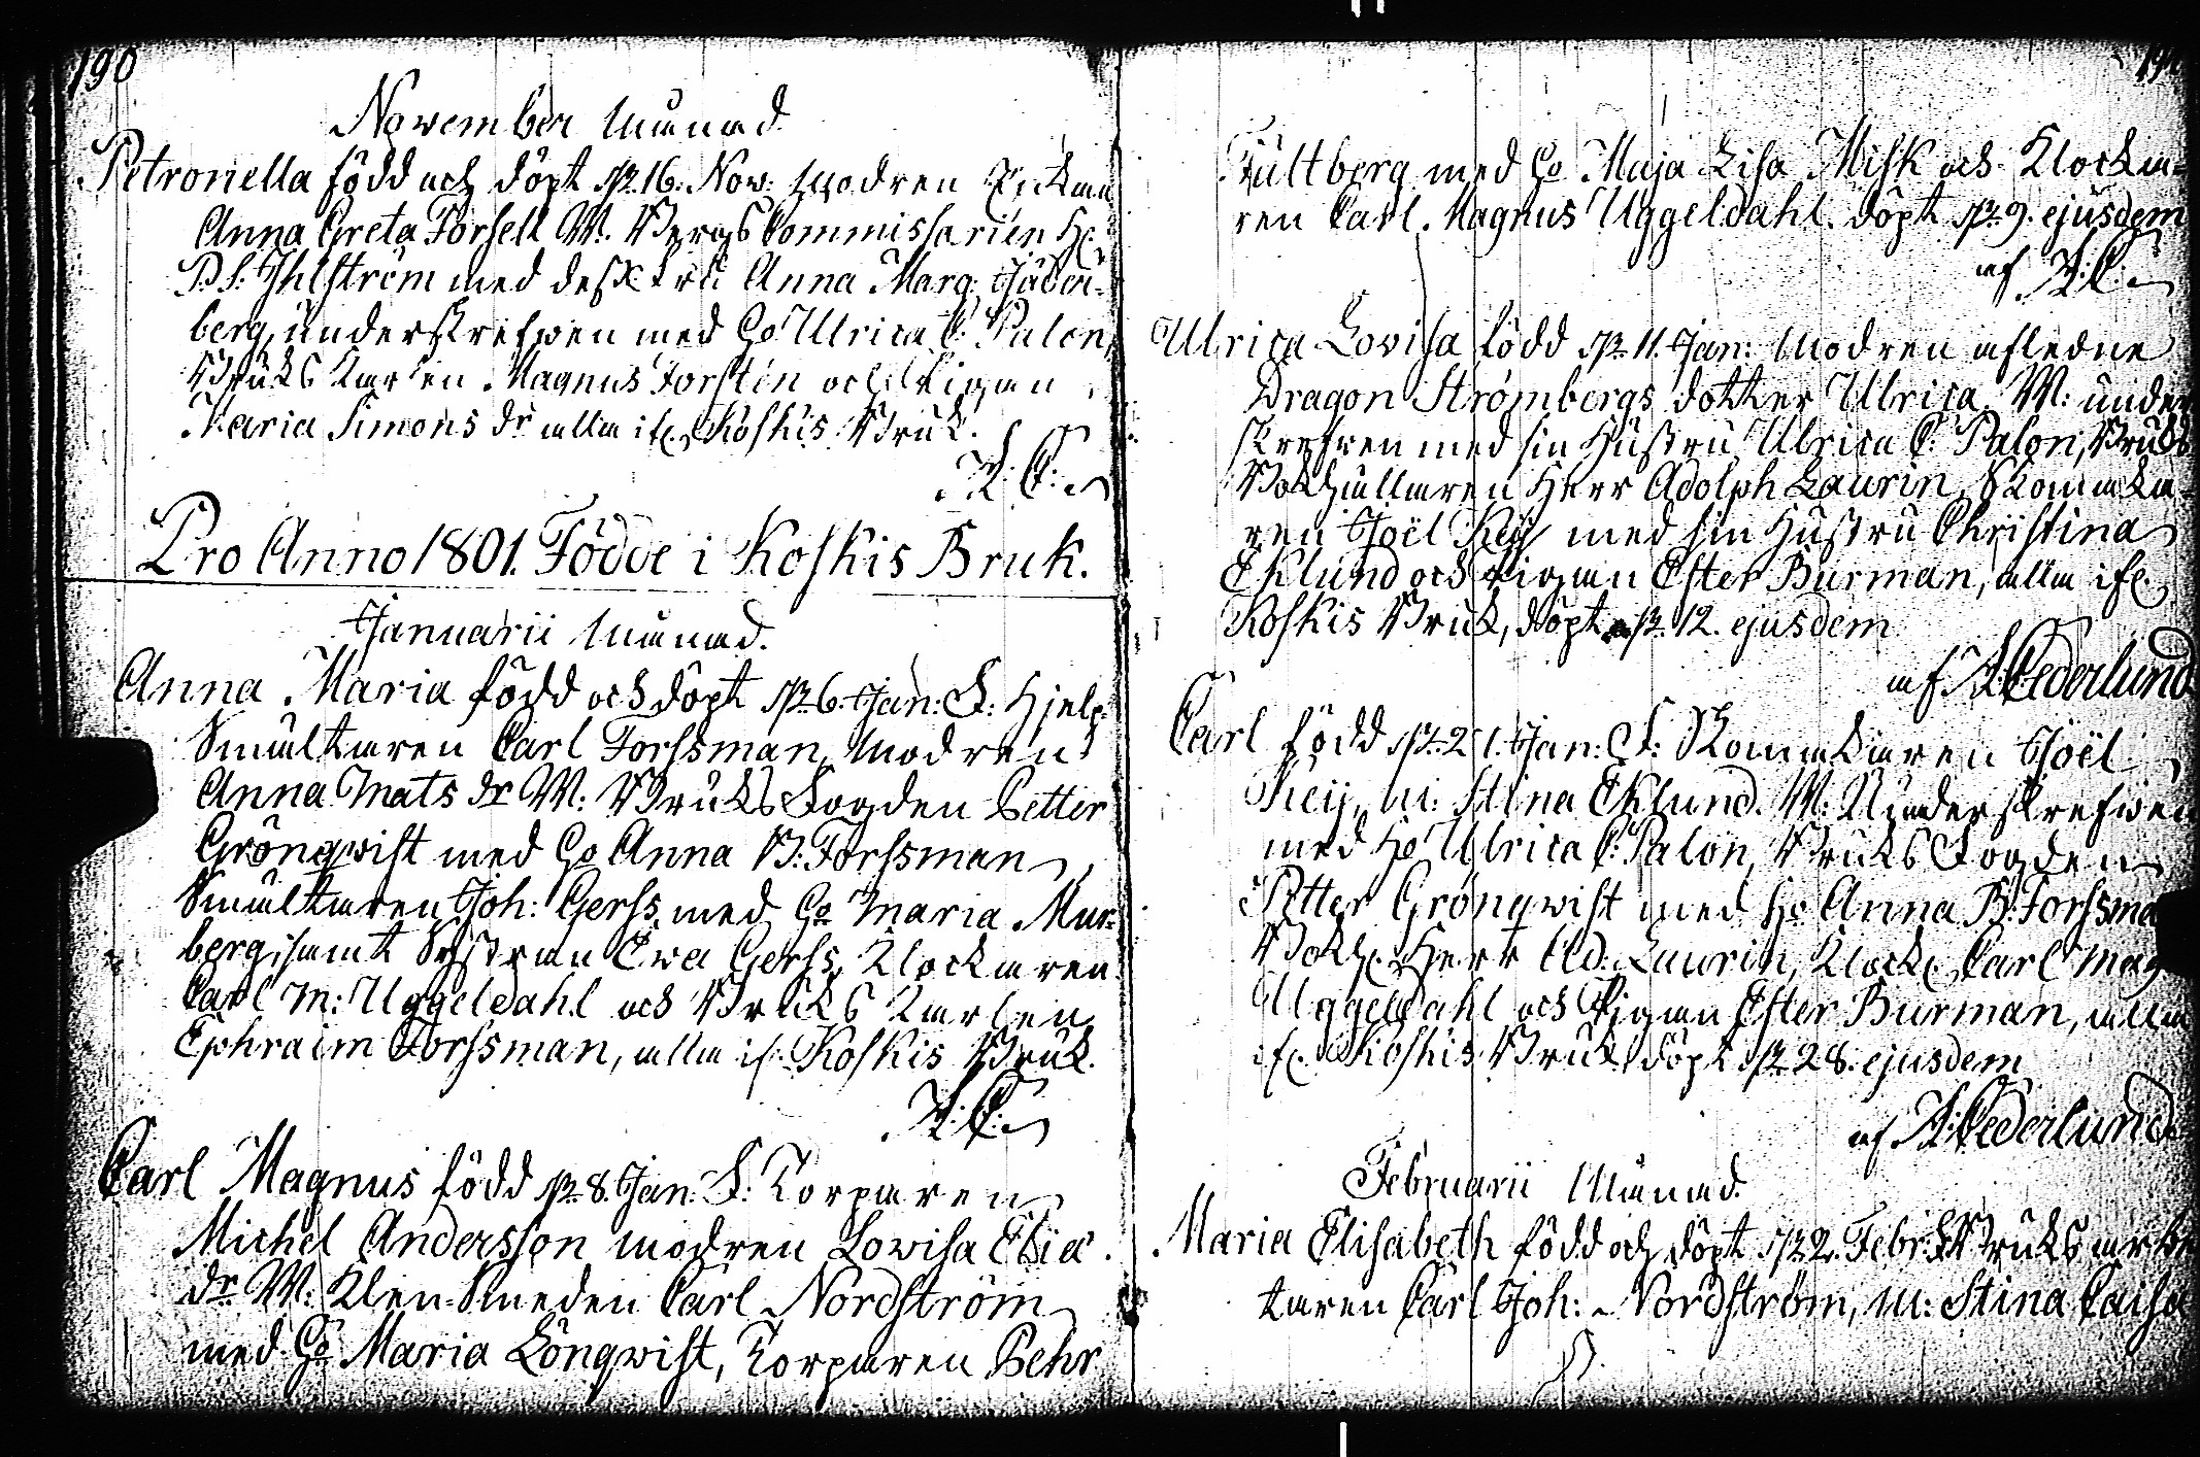 190
November Månad
Petronella född och döpt d. 16. Nov: Modren Enkan
Anna Greta Forsell W: Bergs Commissarien H:
P. S. Ihlström med dess Fru Anna Marg:
berg, underskrefwen med Ho Ulrica C: Palon,
Bruks Karlen Magnus Forstén och Pigan
Maria Simons dr alla ifr. Koskis Bruk.
A: C:
Pro Anno 1801. Födde i Koskis Bruk.
Januarii Månad.
Anna Maria född och döpt d. 6. Jan: F: Hjelp
Smältaren Carl Forssman, Modren
Anna Mats dr W: Bruks Fogden Petter
Grönqwist med Ho Anna B: Forssman
Smältaren Joh: Gerss med Ho Maria Mur-
berg, samt Systran Ewa Gerss, Klockaren
Carl M: Uggeldahl och Bruks Karlen
Ephraim Forssman, alla if. Koskis Bruk.
A: C:
Carl Magnus född d. 8. Jan: F: Torparen
Michel Andersson Modren Lovisa Eliæ
dr W: Klen-Smeden Carl Nordström
med Ho Maria Lönqwist, Torparen Pehr
Tultberg med Ho Maja Lisa Misk och Klocka-
ren Carl Magnus Uggeldahl. döpt d. 9. ejusdem
af A: C:
Ulrica Lovisa född d. 11. Jan: Modren afledne
Dragon Strömbergs dotter Ulrica W: under
skrefven med sin Hustru Ulrica C: Palon, Bruks
Bokhållaren Herr Adolph Laurin, Skomaka-
ren Joël Keij med sin Hustru Christina
Eklund och Pigan Ester Burman, alla ifr.
Koskis Bruk, döpt d. 12. ejusdem
af A: Cederlund
Carl född d. 21. Jan: F: Skomakaren Joël
Keij, M: Stina Eklund. W: Underskrefwen
med Ho Ulrica C: Palon, Bruks Fogden
Petter Grönqwist med Ho Anna B: Forssma
Bokh. Herr Ad: Laurin, Klock. Carl Mag
Uggeldahl och Pigan Ester Burman, alla
ifr. Koskis Bruk döpt d. 28. ejusdem
af A: Cederlund
Februarii Månad.
Maria Elisabeth född och döpt d. 2. Febr: F: Bruks arbe
taren Carl Joh: Nordström, M: Stina Caisa